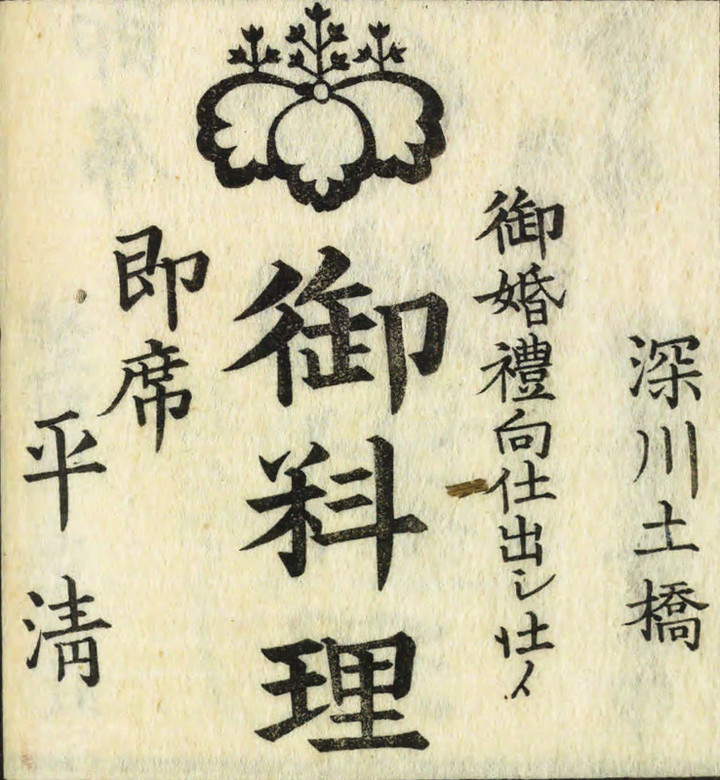 深川土橋
御婚禮向仕出シ仕候
御料理
即席
平清